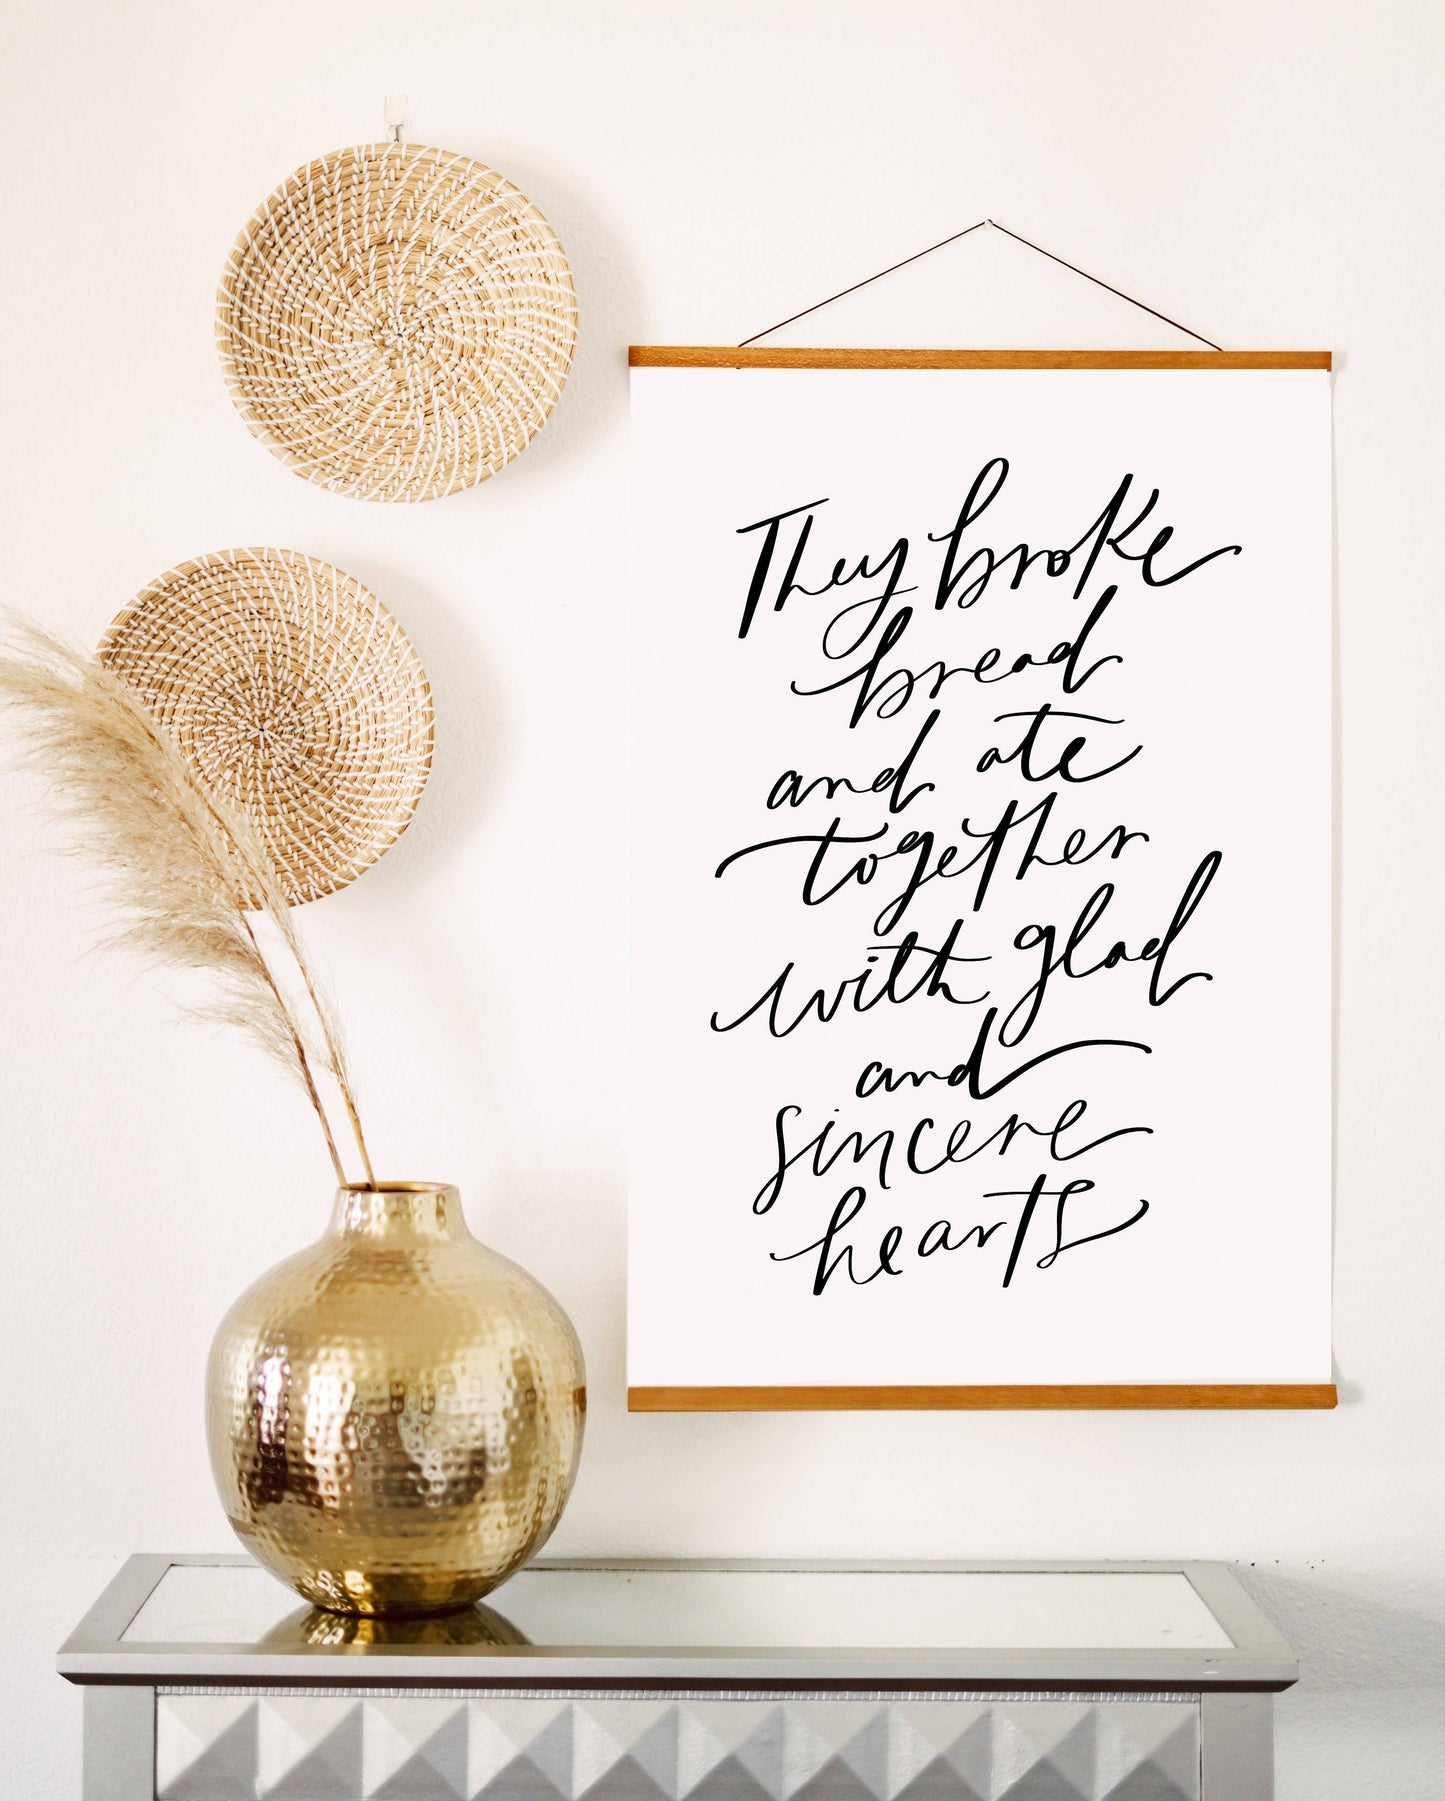 They broke
bread
and ate
together
with glad
and
sincere
hearts